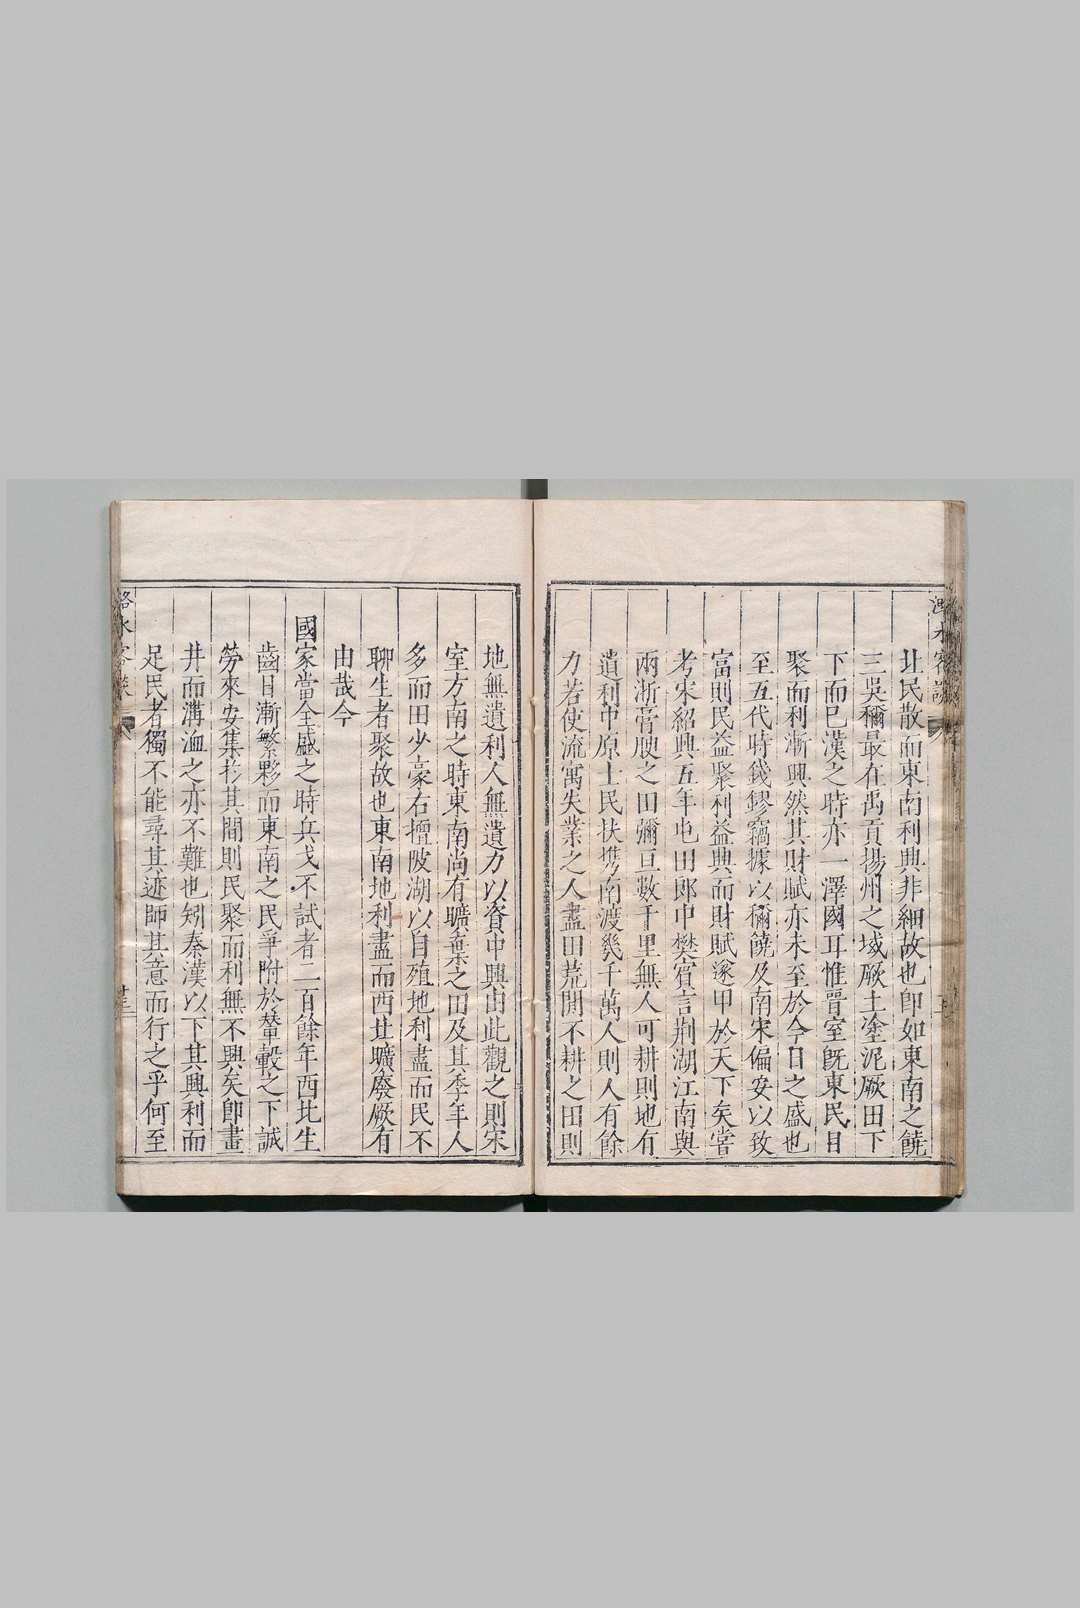 北民散而東南利興非細故也即如東南之饒
三吳稱最在禹貢揚州之域厥土塗泥厥田下
下而已漢之時亦一澤國耳惟晉室既東民日
聚而利漸興然其財賦亦未至於今日之盛也
至五代時錢鏐竊據以稱饒及南宋偏安以致
富則民益聚利益興而財賦遂甲於天下矣嘗
考宋紹興五年屯田郎中樊賓言荆湖江南與
兩浙膏腴之田彌亘數千里無人可耕則地有
遺利中原士民扶携南渡幾千萬人則人有餘
力若使流寓失業之人盡田荒閒不耕之田則
地無遺利人無遺力以資中興由此觀之則宋
室方南之時東南尚有曠棄之田及其季年人
多而田少豪右擅陂湖以自殖地利盡而民不
聊生者聚故也東南地利盡而西北曠廢厥有
由哉今
國家當全盛之時兵戈不試者二百餘年西北生
齒日漸繁夥而東南之民爭附於輦轂之下誠
勞來安集於其間則民聚而利無不興矣即畫
井而溝洫之亦不難也矧秦漢以下其興利而
足民者獨不能尋其迹師其意而行之乎何至
潞水客談